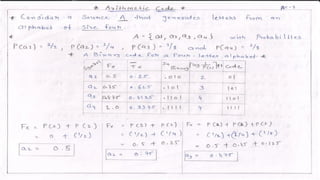 * Arithmetic Code *
* Consider a Source A that generates letters from an
alphabet of Size four.
A = {a1, a2, a3, a4} with Probabilities
P(a1) = 1/2, P(a2) = 1/4, P(a3) = 1/8 and P(a4) = 1/8
* A Binary code for a Four-letter alphabet *
Fx In Binary Code
a1 0.5 0.25 .010 2 01
a2 0.75 0.625 .101 3 101
a3 0.875 0.8125 .1101 4 1101
a4 1.0 0.9375 .1111 4 1111
Fx = P(1) + P(2)
= 0 + (1/2)
a1 = 0.5
Fx = P(1) + P(2)
= (1/2) + (1/4)
= 0.5 + 0.25
a2 = 0.75
Fx = P(1) + P(2) + P(3)
= (1/2) + (1/4) + (1/8)
= 0.5 + 0.25 + 0.125
a3 = 0.875